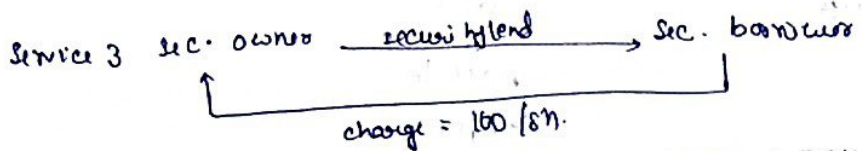 Service 3 sec. owner security lend sec. borrower
charge = 100/sh.